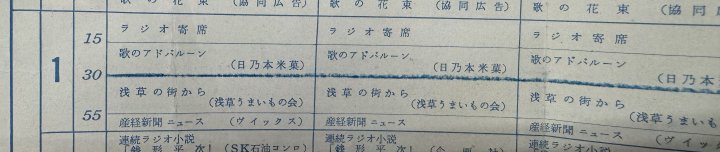 歌の花束 (協同広告) 歌の花束 (協同広告) 歌の花束 (協同
15 ラジオ寄席 ラジオ寄席 ラジオ寄席
歌のアドバルーン 歌のアドバルーン 歌のアドバルーン
(日乃本米菓) (日乃本米菓) (日乃本
1 30
浅草の街から 浅草の街から 浅草の街から
(浅草うまいもの会) (浅草うまいもの会) (浅草うまいも
55 産経新聞ニュース (ヴィックス) 産経新聞ニュース (ヴィックス) 産経新聞ニュース (ヴィ
連続ラジオ小説 連続ラジオ小説 連続ラジオ小説
銭形平次 (SK石油コンロ) 銭形平次